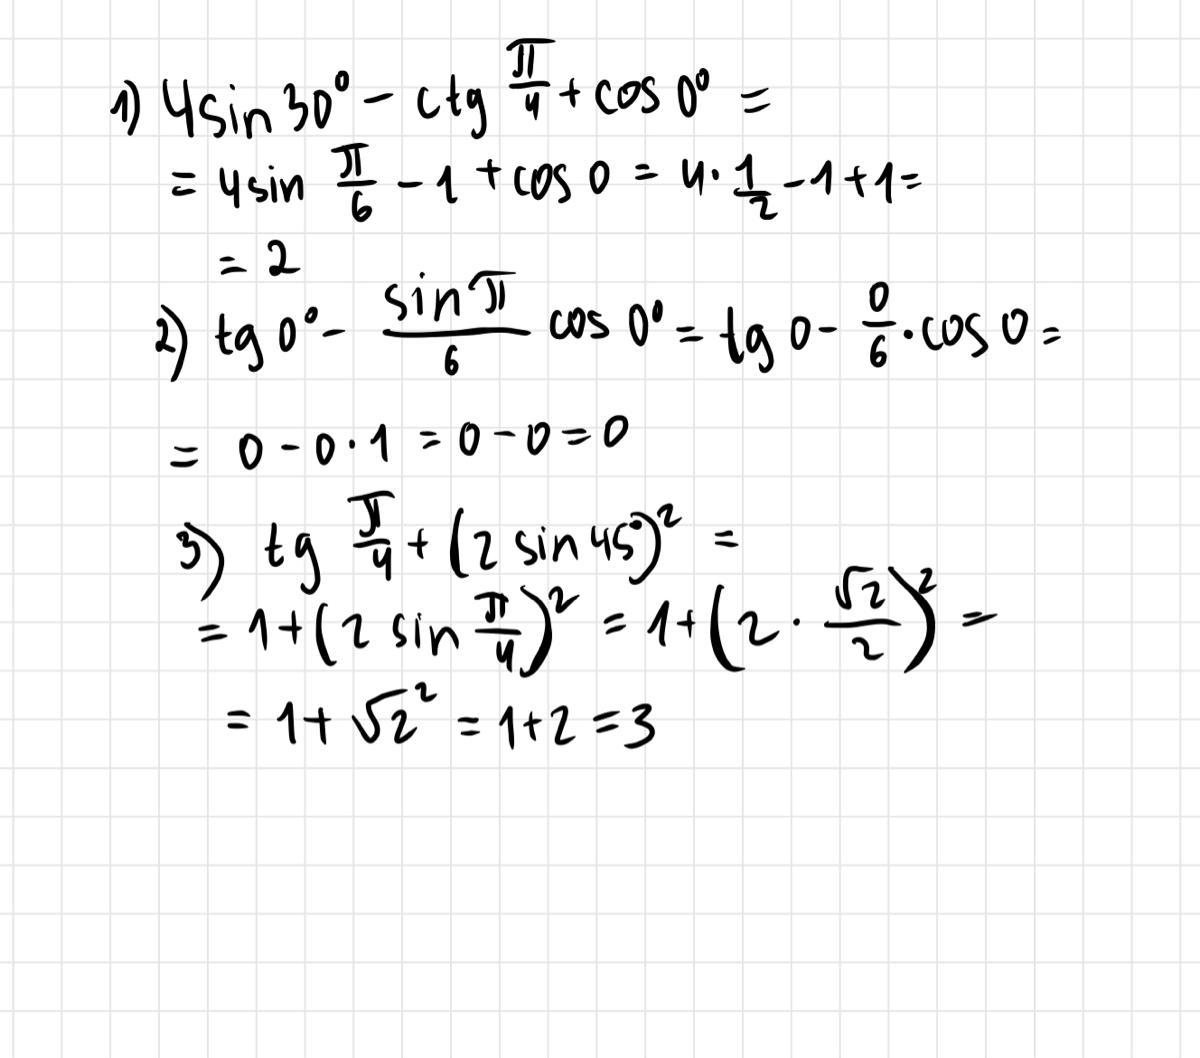 1) 4sin 30° - ctg π/4 + cos 0° =
= 4 sin π/6 - 1 + cos 0 = 4 · 1/2 - 1 + 1 =
= 2
2) tg 0° - sin π/6 cos 0° = tg 0 - 0/6 · cos 0 =
= 0 - 0 · 1 = 0 - 0 = 0
3) tg π/4 + (2 sin 45°)² =
= 1 + (2 sin π/4)² = 1 + (2 · √2/2)² =
= 1 + √2² = 1 + 2 = 3